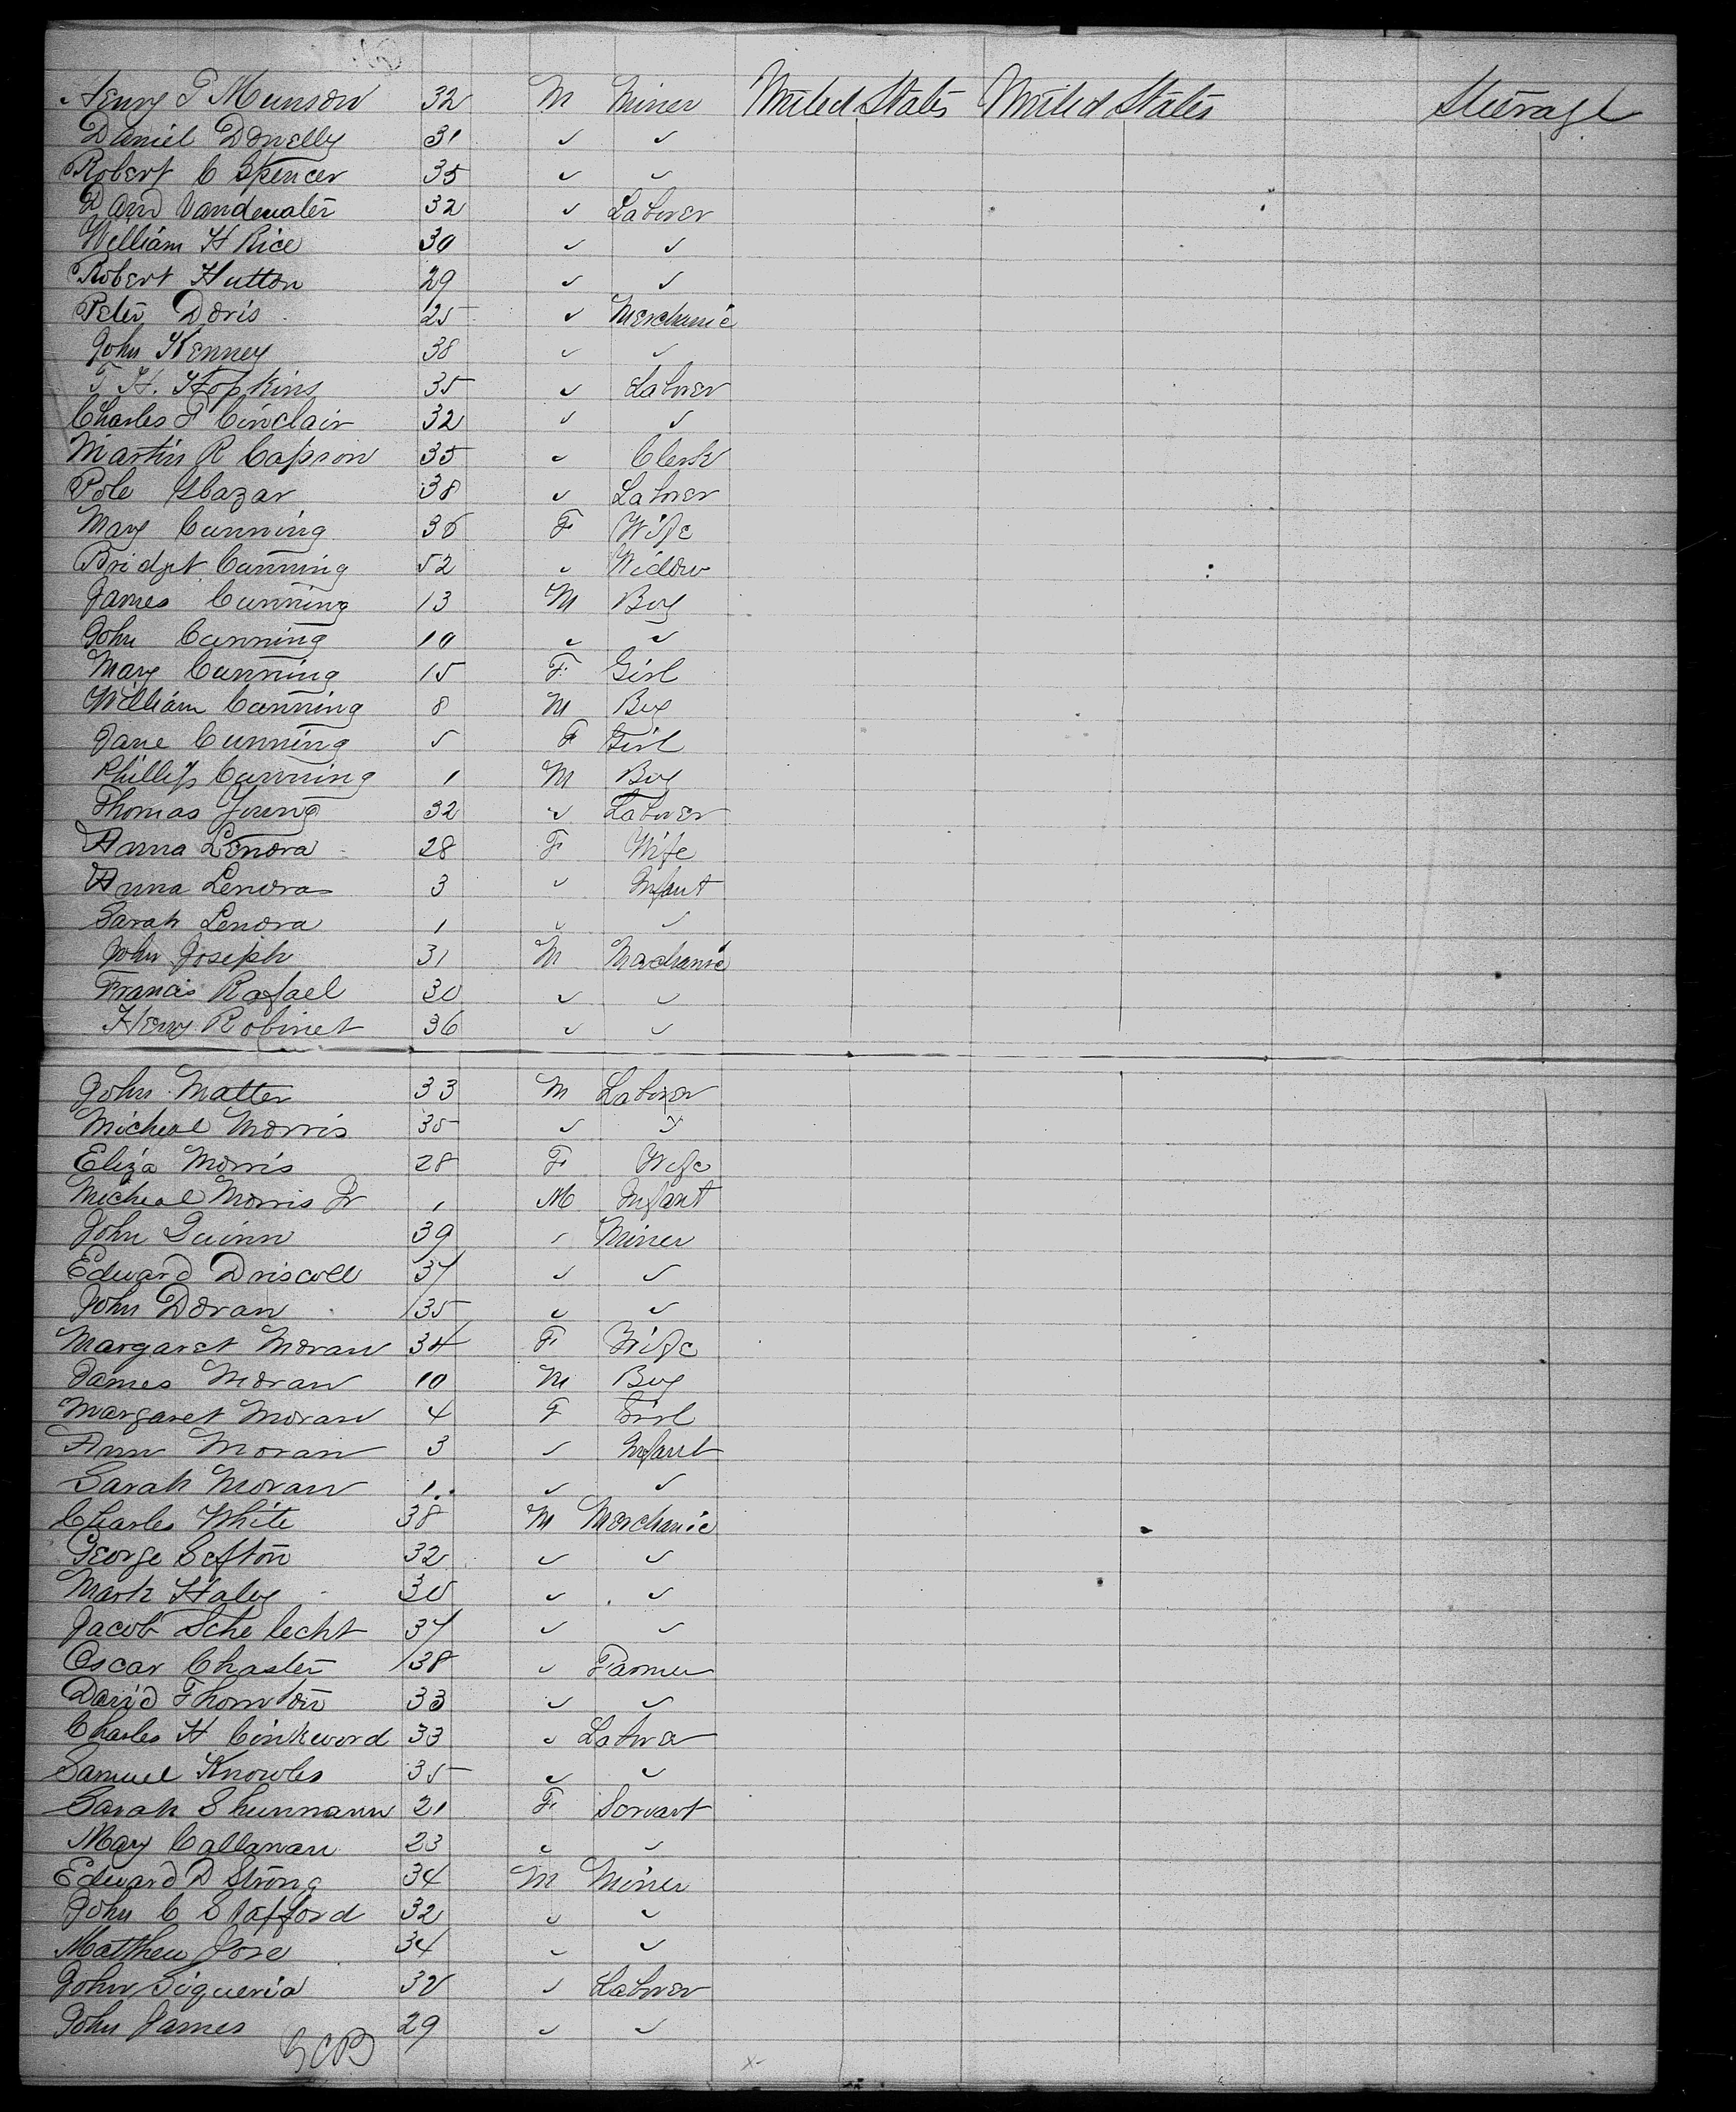 Henry P Munson 32 M Miner United States United States Steerage
Daniel Donelly 31 ✓ ✓
Robert C Spencer 35 ✓ ✓
David Vandewater 32 ✓ Laborer
William H Rice 30 ✓ ✓
Robert Hutton 29 ✓ ✓
Peter Doris 25 ✓ Merchanic
John Kenney 38 ✓ ✓
T. H. Hopkins 35 ✓ Laborer
Charles P Cinclair 32 ✓ ✓
Martin R Capron 35 ✓ Clerk
Pole Glazar 38 ✓ Laborer
Mary Cunning 36 F Wife
Bridget Cunning 52 ✓ Widow
James Cunning 13 M Boy
John Cunning 10 ✓ ✓
Mary Cunning 15 F Girl
William Cunning 8 M Boy
Jane Cunning 5 F Girl
Phillip Cunning 1 M Boy
Thomas Young 32 ✓ Laborer
Hanna Lenora 28 F Wife
Anna Lenora 3 ✓ Infant
Sarah Lenora 1 ✓ ✓
John Joseph 31 M Mechanic
Francis Rafael 30 ✓ ✓
Henry Robinet 36 ✓ ✓
John Matter 33 M Laborer
Micheal Morris 35 ✓ ✓
Eliza Morris 28 F Wife
Micheal Morris Jr 1 M Infant
John Quinn 39 ✓ Miner
Edward Driscoll 37 ✓ ✓
John Doran 35 ✓ ✓
Margaret Moran 34 F Wife
James Moran 10 M Boy
Margaret Moran 4 F Girl
Ann Moran 3 ✓ Infant
Sarah Moran 1 ✓ ✓
Charles White 38 M Merchanic
George Sefton 32 ✓ ✓
Mark Haley 30 ✓ ✓
Jacob Schelecht 37 ✓ ✓
Oscar Chaster 38 ✓ Farmer
David Thornton 33 ✓ ✓
Charles H Cinkword 33 ✓ Laborer
Samuel Knowles 35 ✓ ✓
Sarah Shunmann 21 F Servant
Mary Callanan 23 ✓ ✓
Edward D Strong 34 M Miner
John C Stafford 32 ✓ ✓
Matthew Jose 34 ✓ ✓
John Siqueria 30 ✓ Laborer
John James 29 ✓ ✓